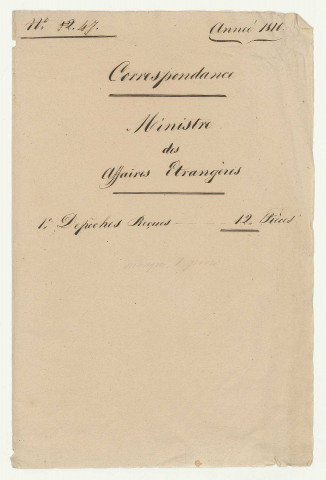 Nº 32.47.
Année 1810
Correspondance
Ministre
des
Affaires Etrangères
1º Dépêches Reçues 12 Pièces